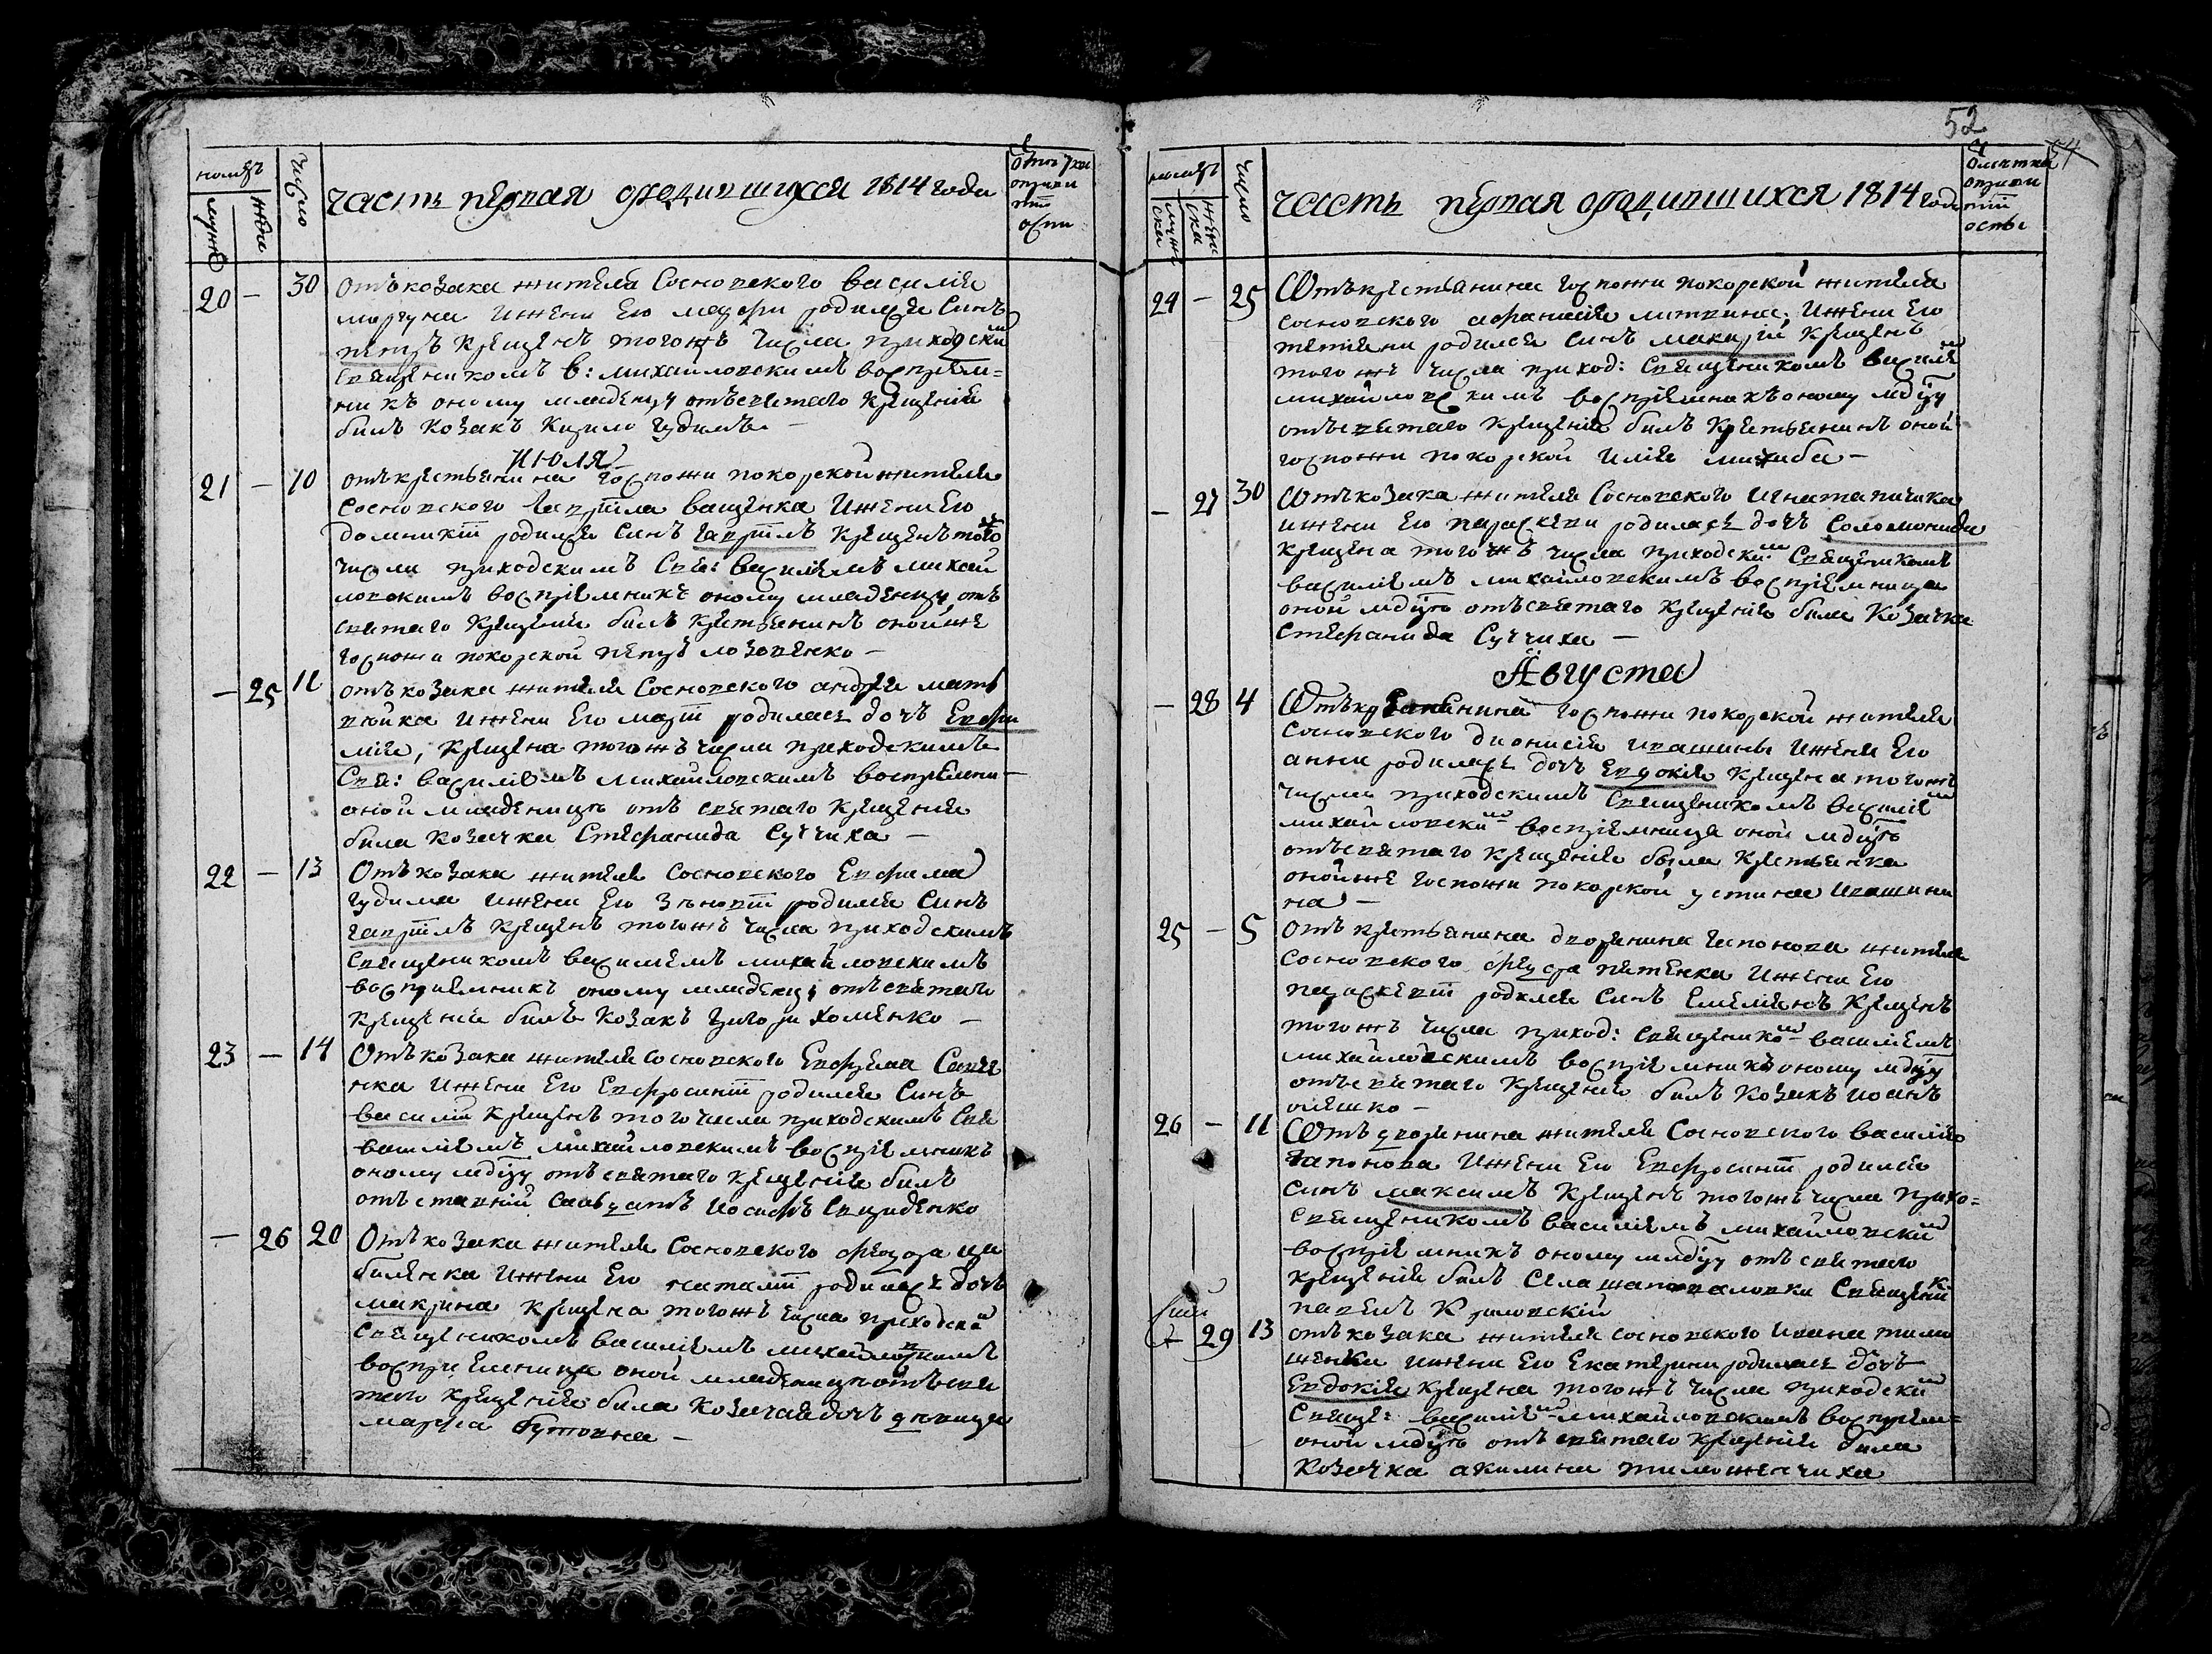 номеръ
число
часть первая ѡродившихся 1814 года
20 — 30 отъ козака жителя Сосновского василия
моргуна и жени его мафри родился Синъ
петръ крещенъ тогожъ числа приходским
священикомъ в: михайловскимъ воспріем=
никъ оному младенцу отъ святаго крещенія
билъ козакъ Кирило гудимъ —
июля
21 — 10 отъ крестьянина госпожи покорской жителя
Сосновского гавріила ващенка и жени его
домникіи родился Синъ гавріилъ крещенъ того
числа приходскимъ Свя: василіемъ михай
ловскимъ воспріемникъ оному младенцу отъ
святаго крещенія билъ крестьянинъ оной же
госпожи покорской петръ лозовенко —
— 25 11 отъ козака жителя Сосновского андрея матв
ейка и жени его маріи родилась дочъ Евфи
мія, крещена тогожъ числа приходскимъ
Свя: василіемъ михайловскимъ воспріемни —
оной младеницъ отъ святаго крещенія
била козачка Стефанида Сучиха —
22 — 13 Отъ козака жителя Сосновского Евфима
гудима и жени его Зѣновіи родился Синъ
гавріилъ крещенъ тогожъ числа приходскимъ
священикомъ василіемъ михайловскимъ
воспріемникъ оному младенцу отъ святаго
крещенія билъ козакъ григори хоменко —
23 — 14 Отъ козака жителя Сосновского Евфрема Савче
нка и жени его Евфросиніи родился Синъ
василій крещенъ того числа приходскимъ Свя
василіемъ михайловскимъ воспріемникъ
оному мдцу отъ святаго крещенія билъ
отъставній Салдатъ иосифъ Свириденко
— 26 20 Отъ козака жителя Сосновского феодора ци
биленка и жени его наталіи родилась дочъ
макрина крещена тогожъ числа приходски
Священикомъ василіемъ михайловскимъ
воспріемница оной младеницъ отъ свя
таго крещенія била козачая дочъ дѣвица
марфа бутовна —
52
номеръ
мужеска
женска
число
часть первая ѡродившихся 1814 года
24 — 25 Ѡтъ крестьянина госпожи покорской жителя
сосновского афанасія литвина, и жени его
татіяни родился синъ макарій крещенъ
тогожъ числа приход: священикомъ василие
михайловскимъ воспріемникъ оному мдцу
отъ святаго крещенія билъ крестьянинъ оной
госпожи покорской илія —
— 27 30 Ѡтъ козака жителя Сосновского игната
и жени его параскеви родилась дочъ Соломонида
крещена тогожъ числа приходски священикомъ
василіемъ михайловскимъ воспріемница
оной мдцъ отъ святаго крещенія била козачка
стефанида Сучиха —
Августа
— 28 4 Ѡтъ крестьянина госпожи покорской жителя
Сосновского дионисія ивашини и жени его
анни родилась дочъ Евдокія крещена тогожъ
числа приходскимъ священикомъ василіе
михайловски воспріемница оной мдцъ
отъ святаго крещенія была крестьянка
онойже госпожи покорской устина ивашини
на —
25 — 5 отъ крестьянина дворянина гапонова жителя
Сосновского феодора петенка и жени его
параскевіи родился Синъ Емеліянъ крещенъ
тогожъ числа приход: священико василіемъ
михайловскимъ воспріемникъ оному мдцу
отъ святаго крещенія билъ козакъ иоанъ
олешко —
26 — 11 Ѡтъ дворянина жителя Сосновского василія
гапонова и жени его Евфросиніи родился
синъ максимъ крещенъ тогожъ числа прихо=
священикомъ василіемъ михайловски
воспріемникъ оному мдцу отъ святаго
крещенія билъ села шаповаловки священик
павелъ Криловскій
29 13 отъ козака жителя сосновского ивана тимо
шенка и жени его Екатерини родилась дочъ
Евдокія крещена тогожъ числа приходски
Свяще: василіе михайловскимъ воспріем=
оной мдцъ отъ святаго крещенія била
козачка акилина тимошенчиха